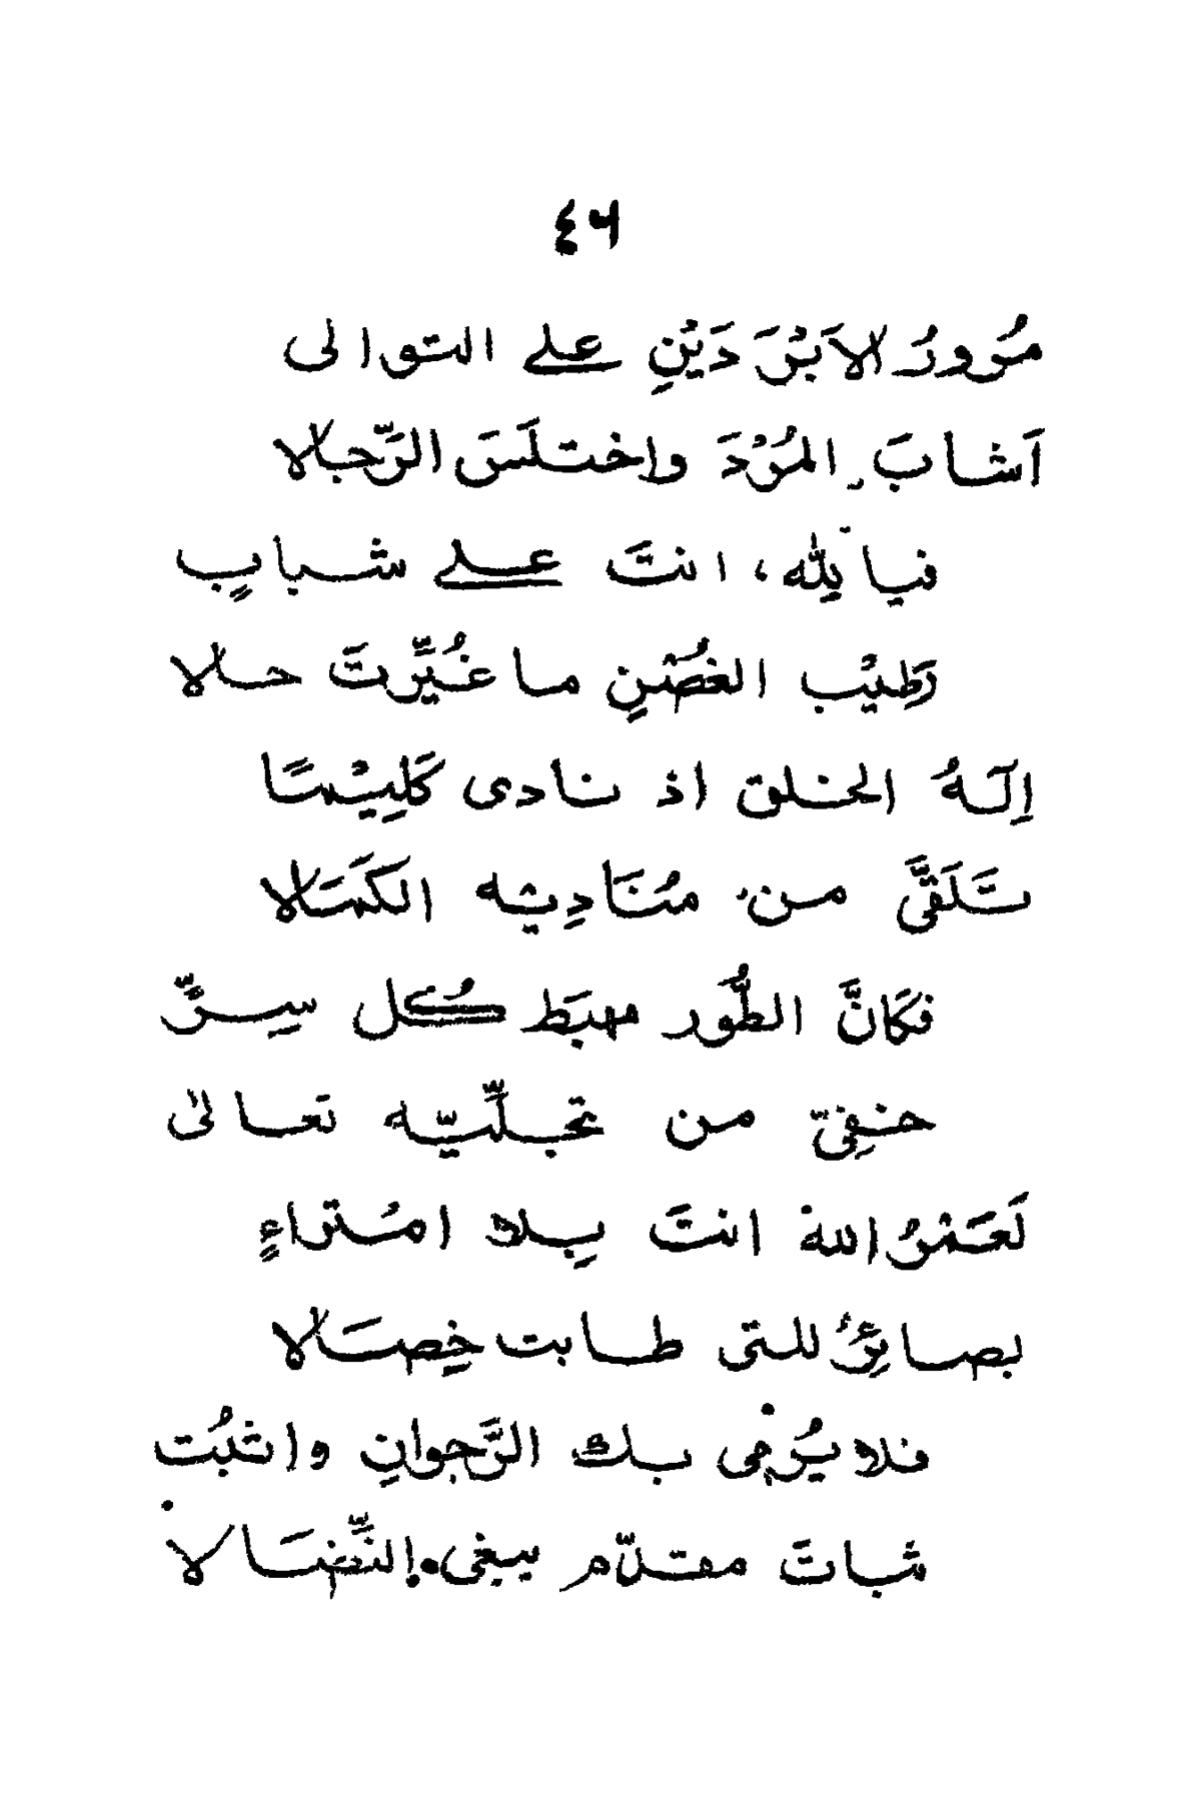 ٤٦
مُرورُ الاَبْرَدَيْنِ على التوالى
اَشابَ المُرْدَ واختلَسَ الرِّجالا
فيا لِلّٰه، انتَ على شبابٍ
رَطِيْب الغُصْنِ ما غُيِّرتَ حالا
اِلٰهُ الخلق اذ نادى كَلِيْمًا
تَلَقَّى من مُنَادِيْه الكَمَالا
فكَانَّ الطُّور مهبَط كُل سِرٍّ
خفِىّ من تجلِّيّه تعالىٰ
لَعَمْرُ اللهِ انتَ بِلا امْتراءٍ
بصائرُ للتى طابت خِصَالا
فلا يُرْمى بك الرَّجوانِ واثبُت
ثباتَ مقدّم يبغى النِّضَالا